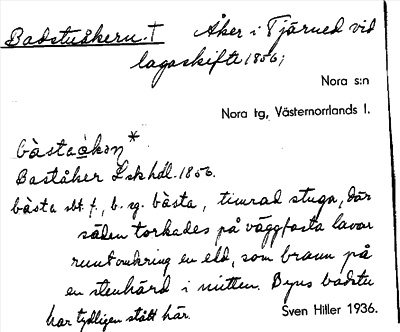 Badstuåkern.† Åker i Tjärned vid
lagaskifte 1856;
Nora s:n
Nora tg, Västernorrlands l.
bàstaåkan*
Baståker Lskhdl. 1856.
bàsta sbt f., b. sg. bàsta, timrad stuga, där
säden torkades på väggfasta lavar
runtomkring en eld, som brann på
en stenhärd i mitten. Byns badstu
har tydligen stått här.
Sven Hitler 1936.